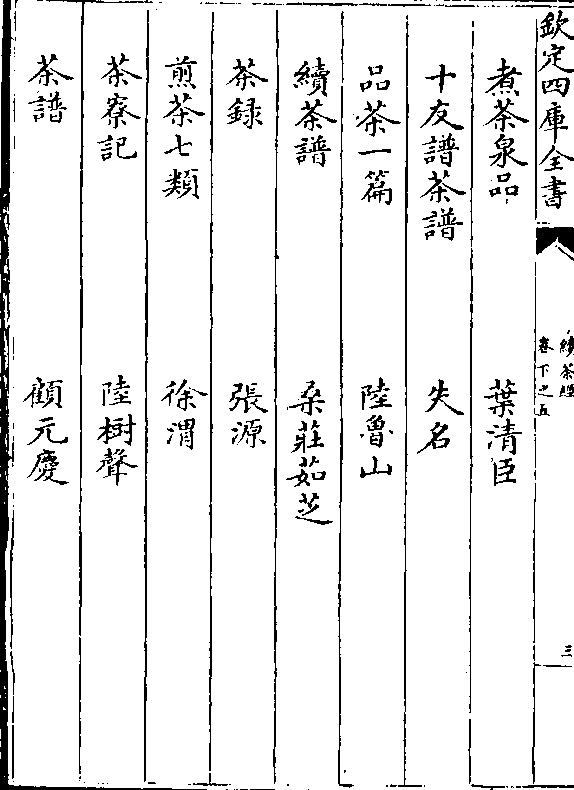 欽定四庫全書
續茶經
卷下之五
三
煮茶泉品 葉清臣
十友譜茶譜 失名
品茶一篇 陸魯山
續茶譜 桑莊茹芝
茶録 張源
煎茶七類 徐渭
茶寮記 陸樹聲
茶譜 顧元慶